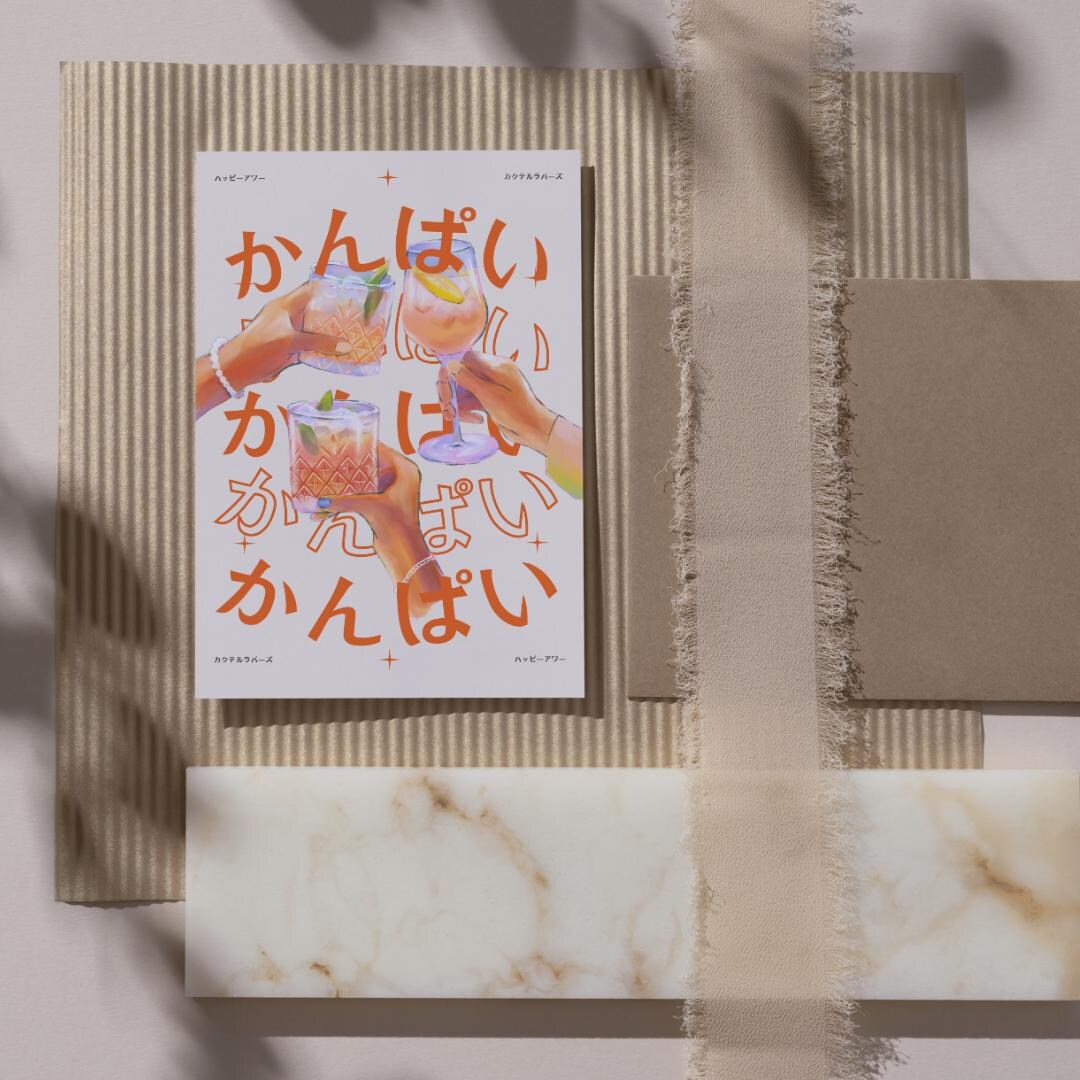 ハッピーアワー
カクテルラバーズ
かんぱい
かんぱい
かんぱい
かんぱい
かんぱい
カクテルラバーズ
ハッピーアワー